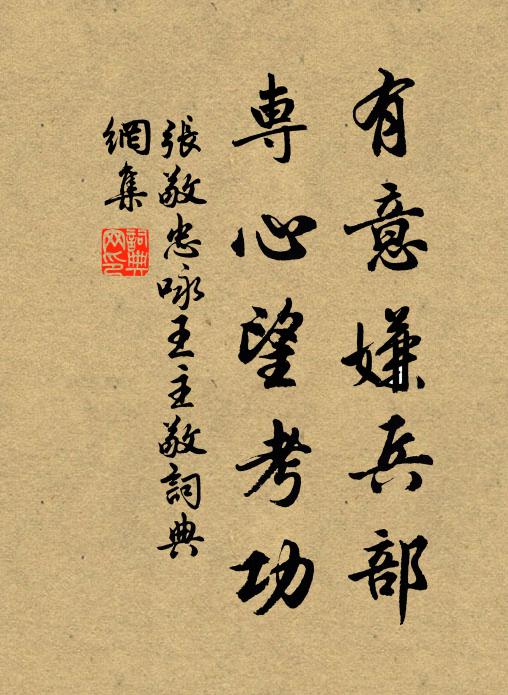 有意嫌兵部
專心望考功
張敬忠咏王主敬詞典
網集
詞典網印